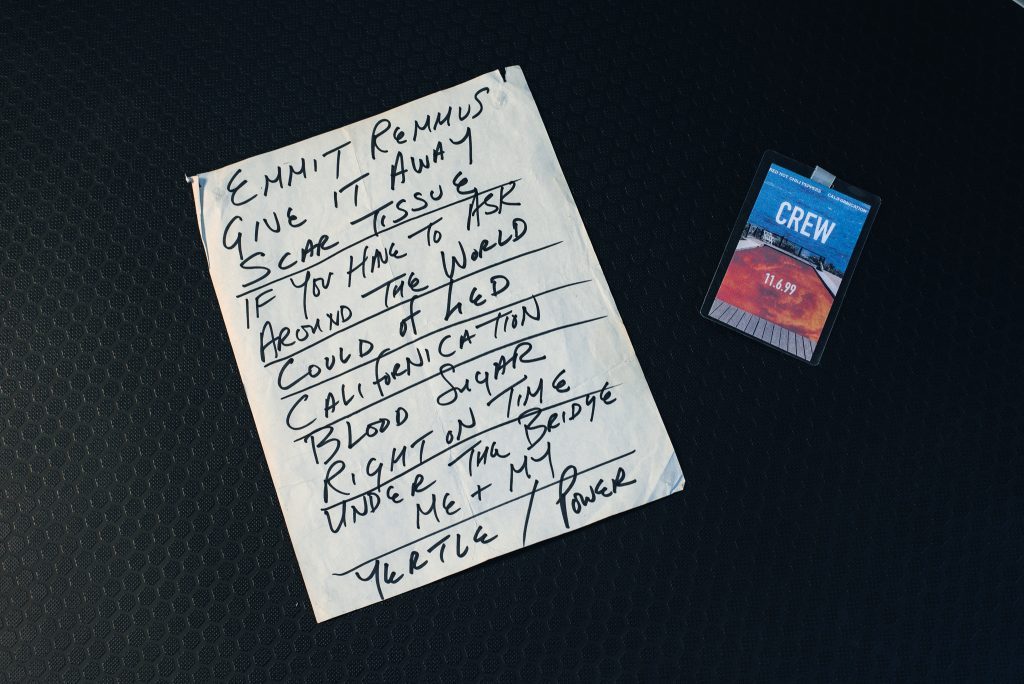 EMMIT REMMUS
GIVE IT AWAY
SCAR TISSUE
IF YOU HAVE TO ASK
AROUND THE WORLD
COULD OF LIED
CALIFORNICATION
BLOOD SUGAR
RIGHT ON TIME
UNDER THE BRIDGE
ME + MY
YERTLE / POWER
RED HOT CHILI PEPPERS CALIFORNICATION
CREW
11.6.99